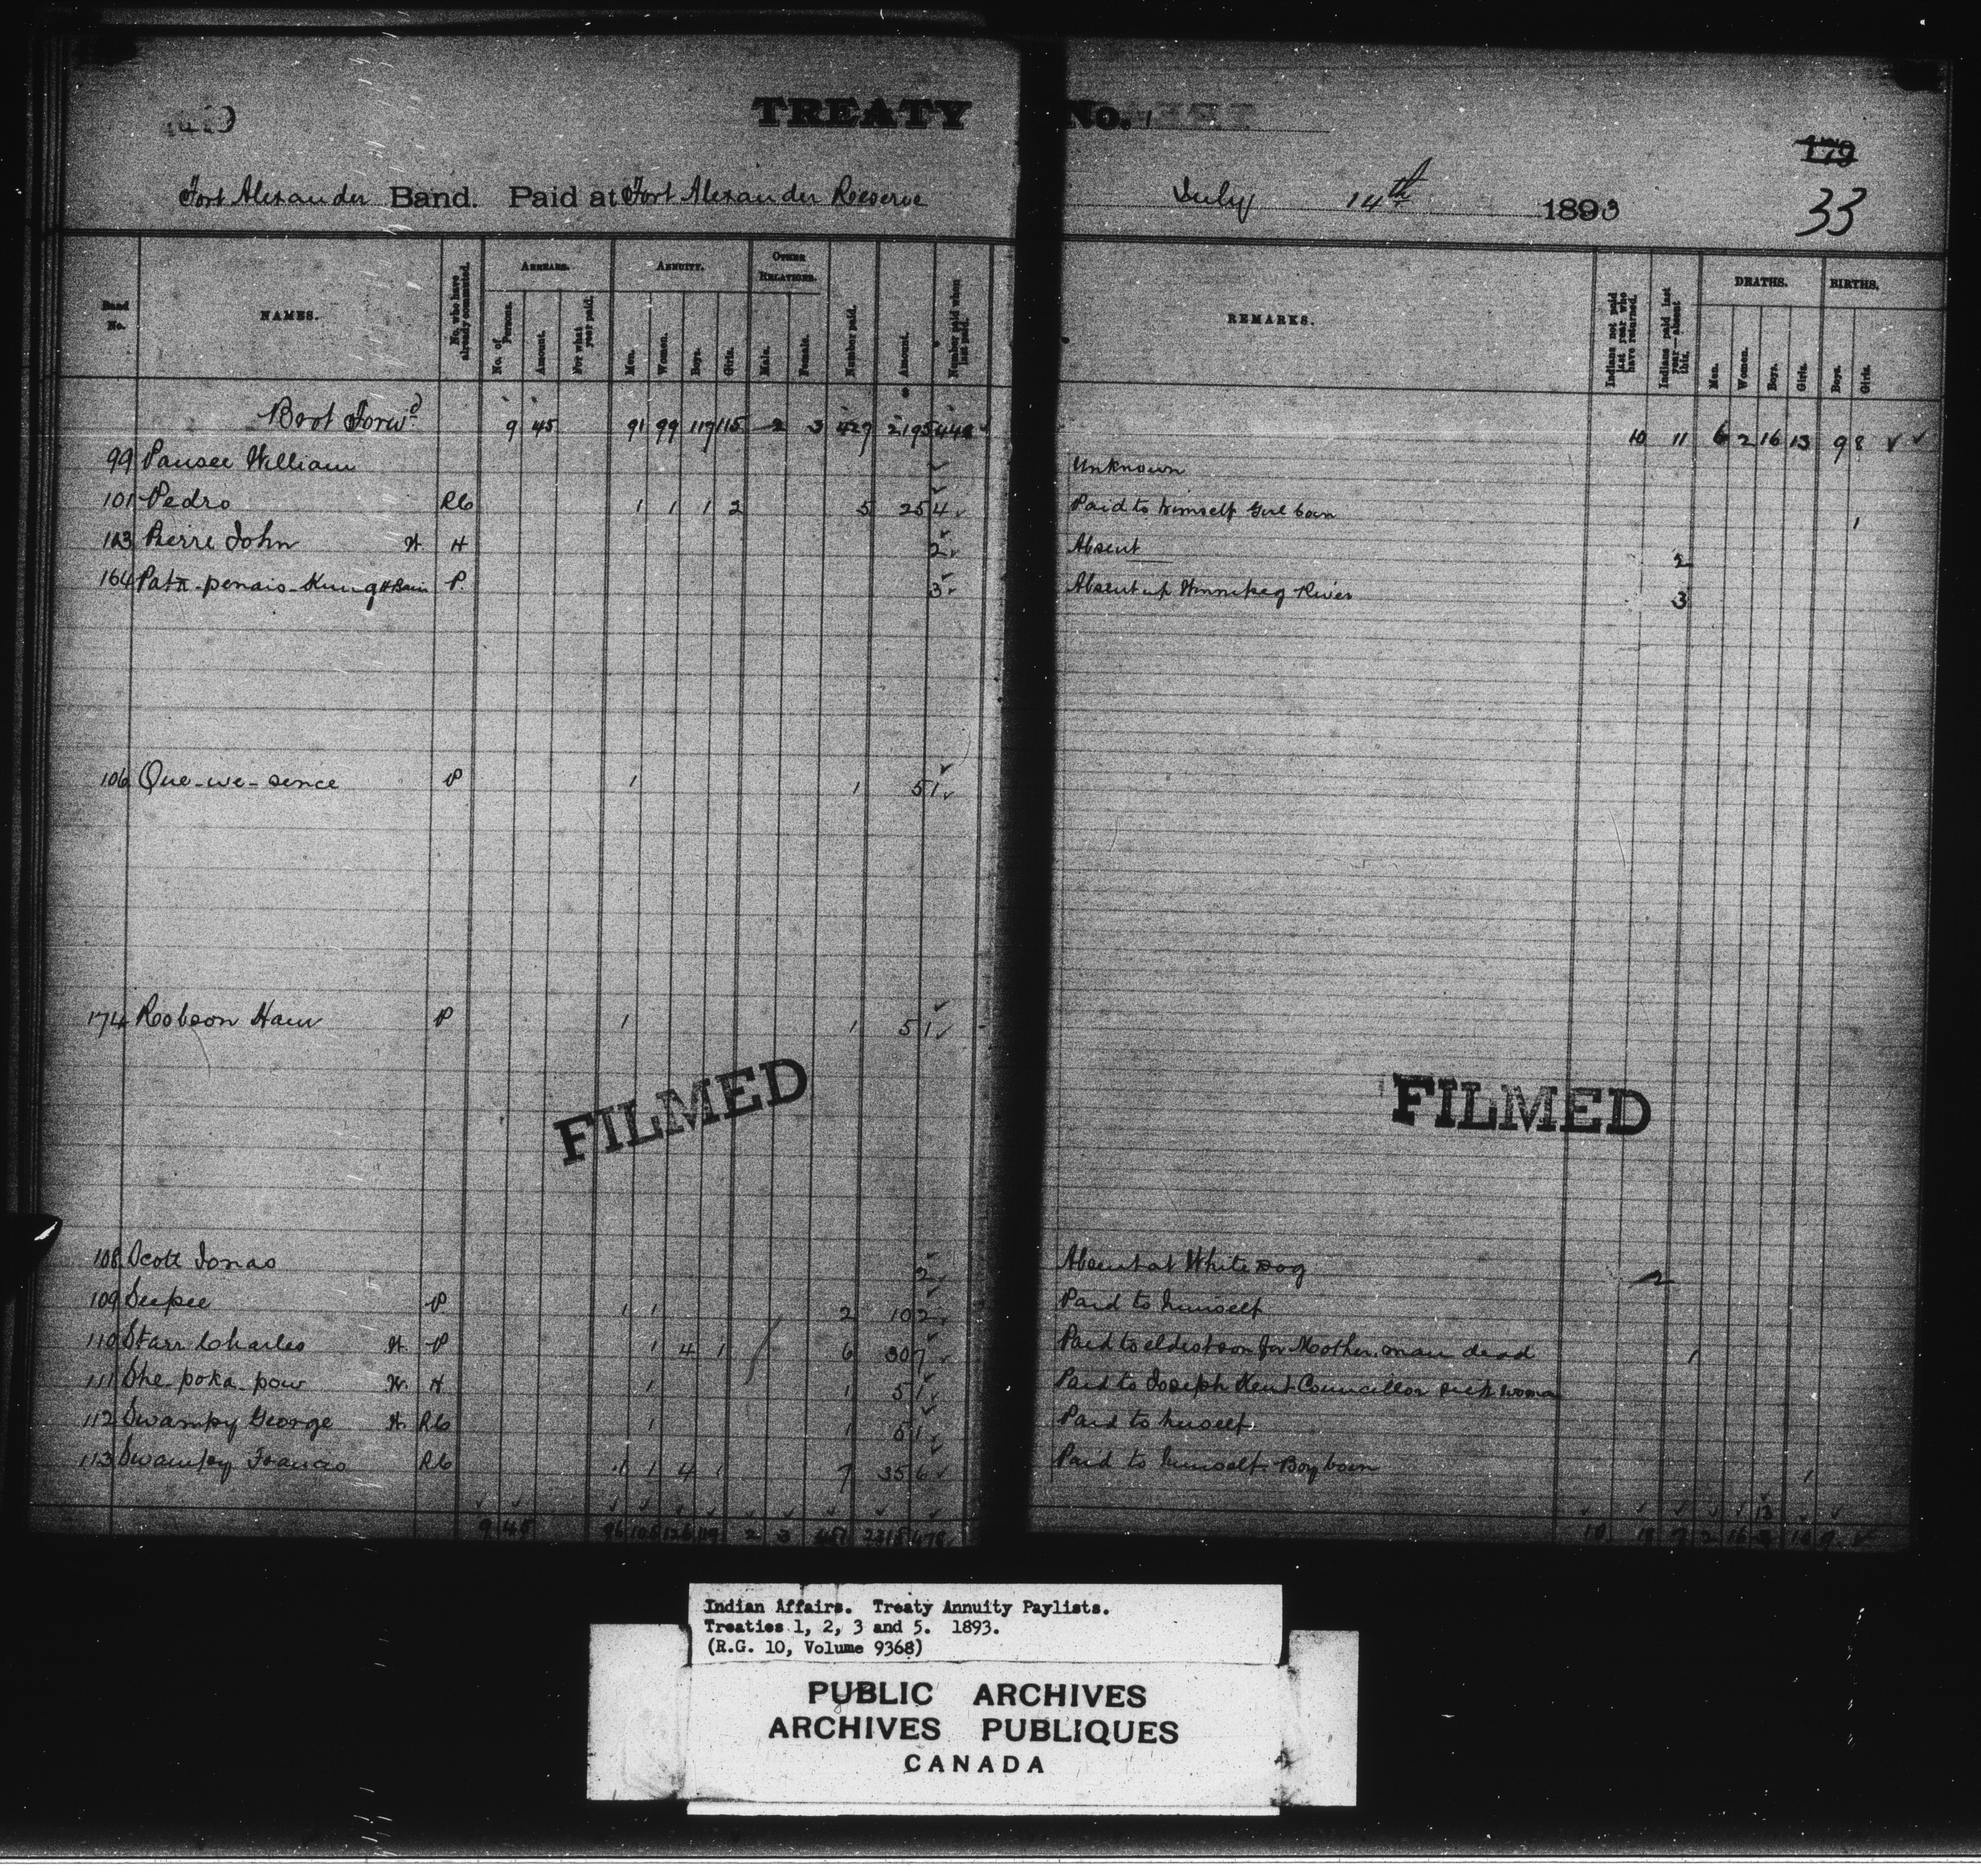 TREATY No. 1
179
33
Fort Alexander Band. Paid at Fort Alexander Reserve July 14th 1893
Band No. NAMES. No. who have already commuted. ARREARS. No. of Persons. Amount. For what year paid. ANNUITY. Men. Women. Boys. Girls. OTHER RELATIONS. Male. Female. Number paid. Amount. Number paid when last paid. REMARKS. Indians not paid last year who have returned. Indians paid last year—absent this. DEATHS. Men. Women. Boys. Girls. BIRTHS. Boys. Girls.
Brot Forwd 9 45 91 99 117 115 2 3 427 2195 10 11 6 2 16 13 9 8
99 Pausee William Unknown
101 Pedro RC 1 1 1 2 5 25 4 Paid to himself Girl born 1
103 Pierre John W. H 2 Absent 2
164 P. 3 Absent up Winnipeg River 3
106 Que-we-sence P 1 1 5 1
174 Robson Ham P 1 1 5 1
FILMED FILMED
108 Scott Jonas 2 Absent at White Dog 2
109 Seepee P 1 1 2 10 2 Paid to himself
110 Starr Charles W. P 1 4 1 6 30 7 Paid to eldest son for Mother. man dead 1
111 She-poka-pow W. H 1 1 5 1 Paid to Joseph Kent Councillor sick woman
112 Swampy George W. RC 1 1 5 1 Paid to herself
113 Swampy Francis RC 1 1 4 1 7 35 6 Paid to himself. Boy born 1
9 45 96 2 3 2315
Indian Affairs. Treaty Annuity Paylists.
Treaties 1, 2, 3 and 5. 1893.
(R.G. 10, Volume 9368)
PUBLIC ARCHIVES
ARCHIVES PUBLIQUES
CANADA